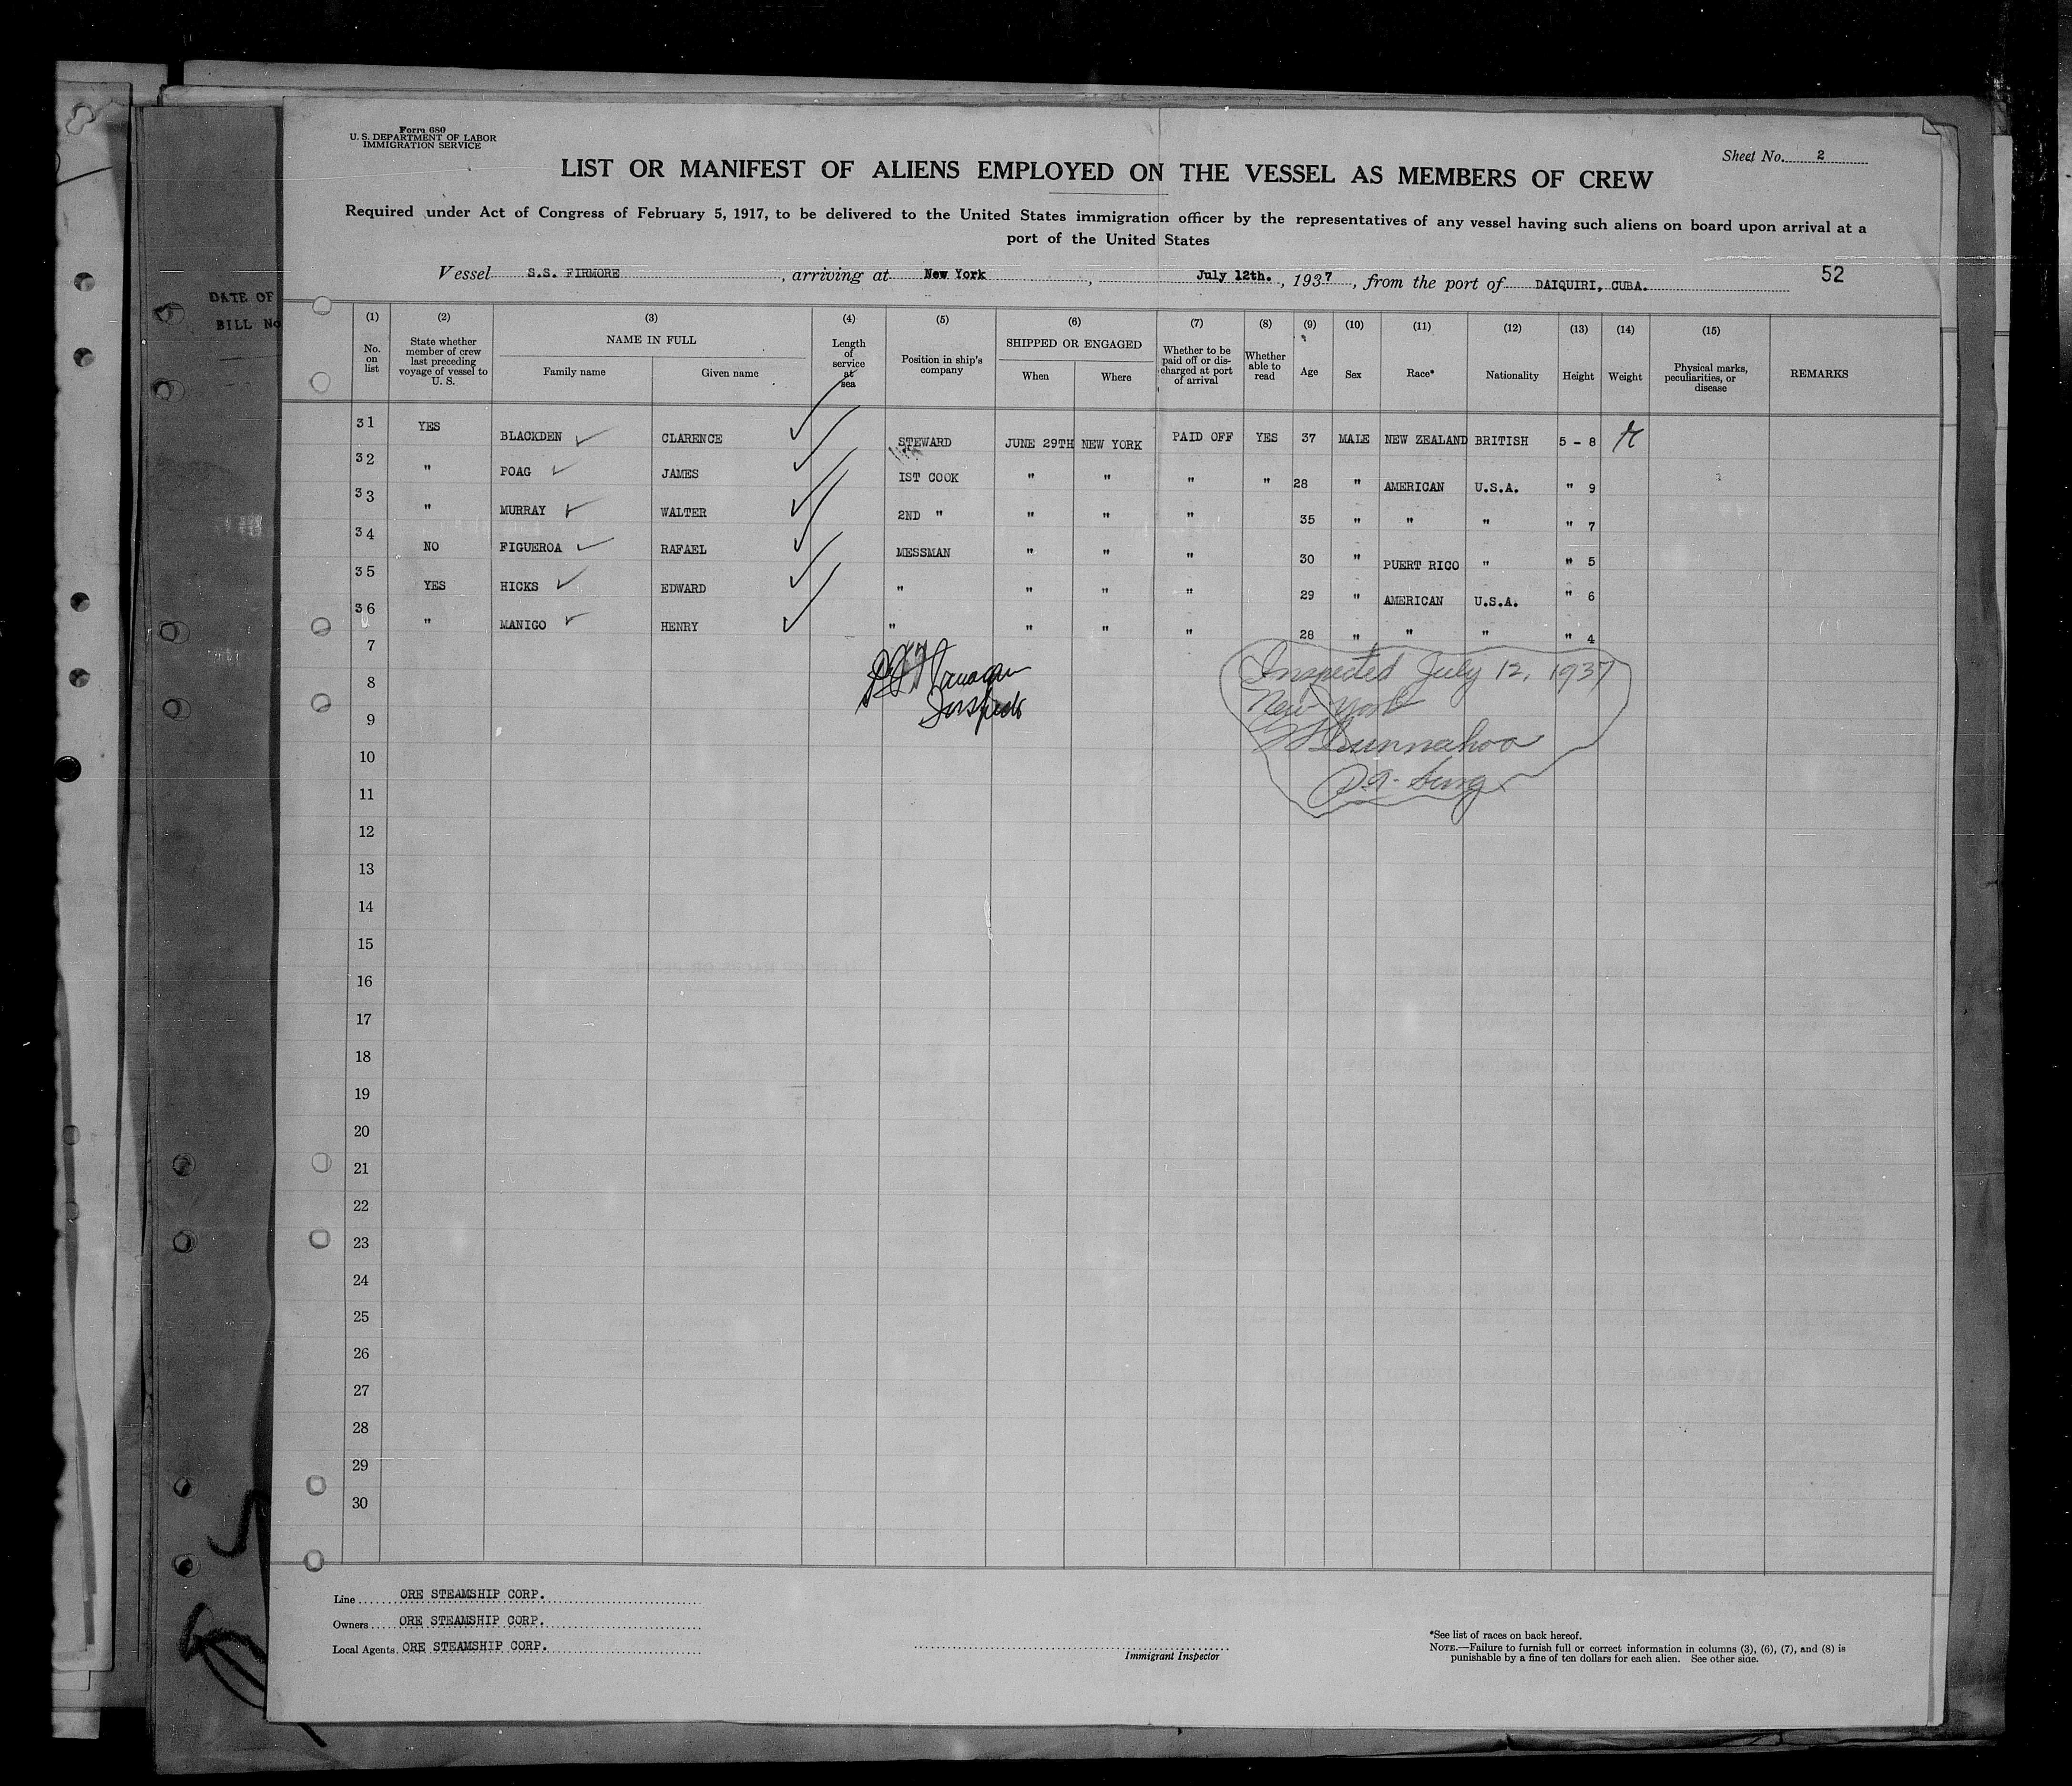 Form 680
U. S. DEPARTMENT OF LABOR
IMMIGRATION SERVICE
Sheet No. 2
LIST OR MANIFEST OF ALIENS EMPLOYED ON THE VESSEL AS MEMBERS OF CREW
Required under Act of Congress of February 5, 1917, to be delivered to the United States immigration officer by the representatives of any vessel having such aliens on board upon arrival at a
port of the United States
Vessel S.S. FIRMORE, arriving at New York, July 12th., 1937, from the port of DAIQUIRI, CUBA.
52
DATE OF
BILL No
(1) (2) (3) (4) (5) (6) (7) (8) (9) (10) (11) (12) (13) (14) (15)
No. on list
State whether member of crew last preceding voyage of vessel to U. S.
NAME IN FULL
Family name
Given name
Length of service at sea
Position in ship's company
SHIPPED OR ENGAGED
When
Where
Whether to be paid off or discharged at port of arrival
Whether able to read
Age
Sex
Race*
Nationality
Height
Weight
Physical marks, peculiarities, or disease
REMARKS
31 YES BLACKDEN CLARENCE STEWARD JUNE 29TH NEW YORK PAID OFF YES 37 MALE NEW ZEALAND BRITISH 5 - 8
32 " POAG JAMES IST COOK " " " " 28 " AMERICAN U.S.A. " 9
33 " MURRAY WALTER 2ND " " " " 35 " " " " 7
34 NO FIGUEROA RAFAEL MESSMAN " " " 30 " PUERT RICO " " 5
35 YES HICKS EDWARD " " " " 29 " AMERICAN U.S.A. " 6
36 " MANIGO HENRY " " " " 28 " " " " 4
7
8
9
10
11
12
13
14
15
16
17
18
19
20
21
22
23
24
25
26
27
28
29
30
Inspected July 12, 1937
New York
Line ORE STEAMSHIP CORP.
Owners ORE STEAMSHIP CORP.
Local Agents ORE STEAMSHIP CORP.
Immigrant Inspector
*See list of races on back hereof.
NOTE.—Failure to furnish full or correct information in columns (3), (6), (7), and (8) is
punishable by a fine of ten dollars for each alien. See other side.